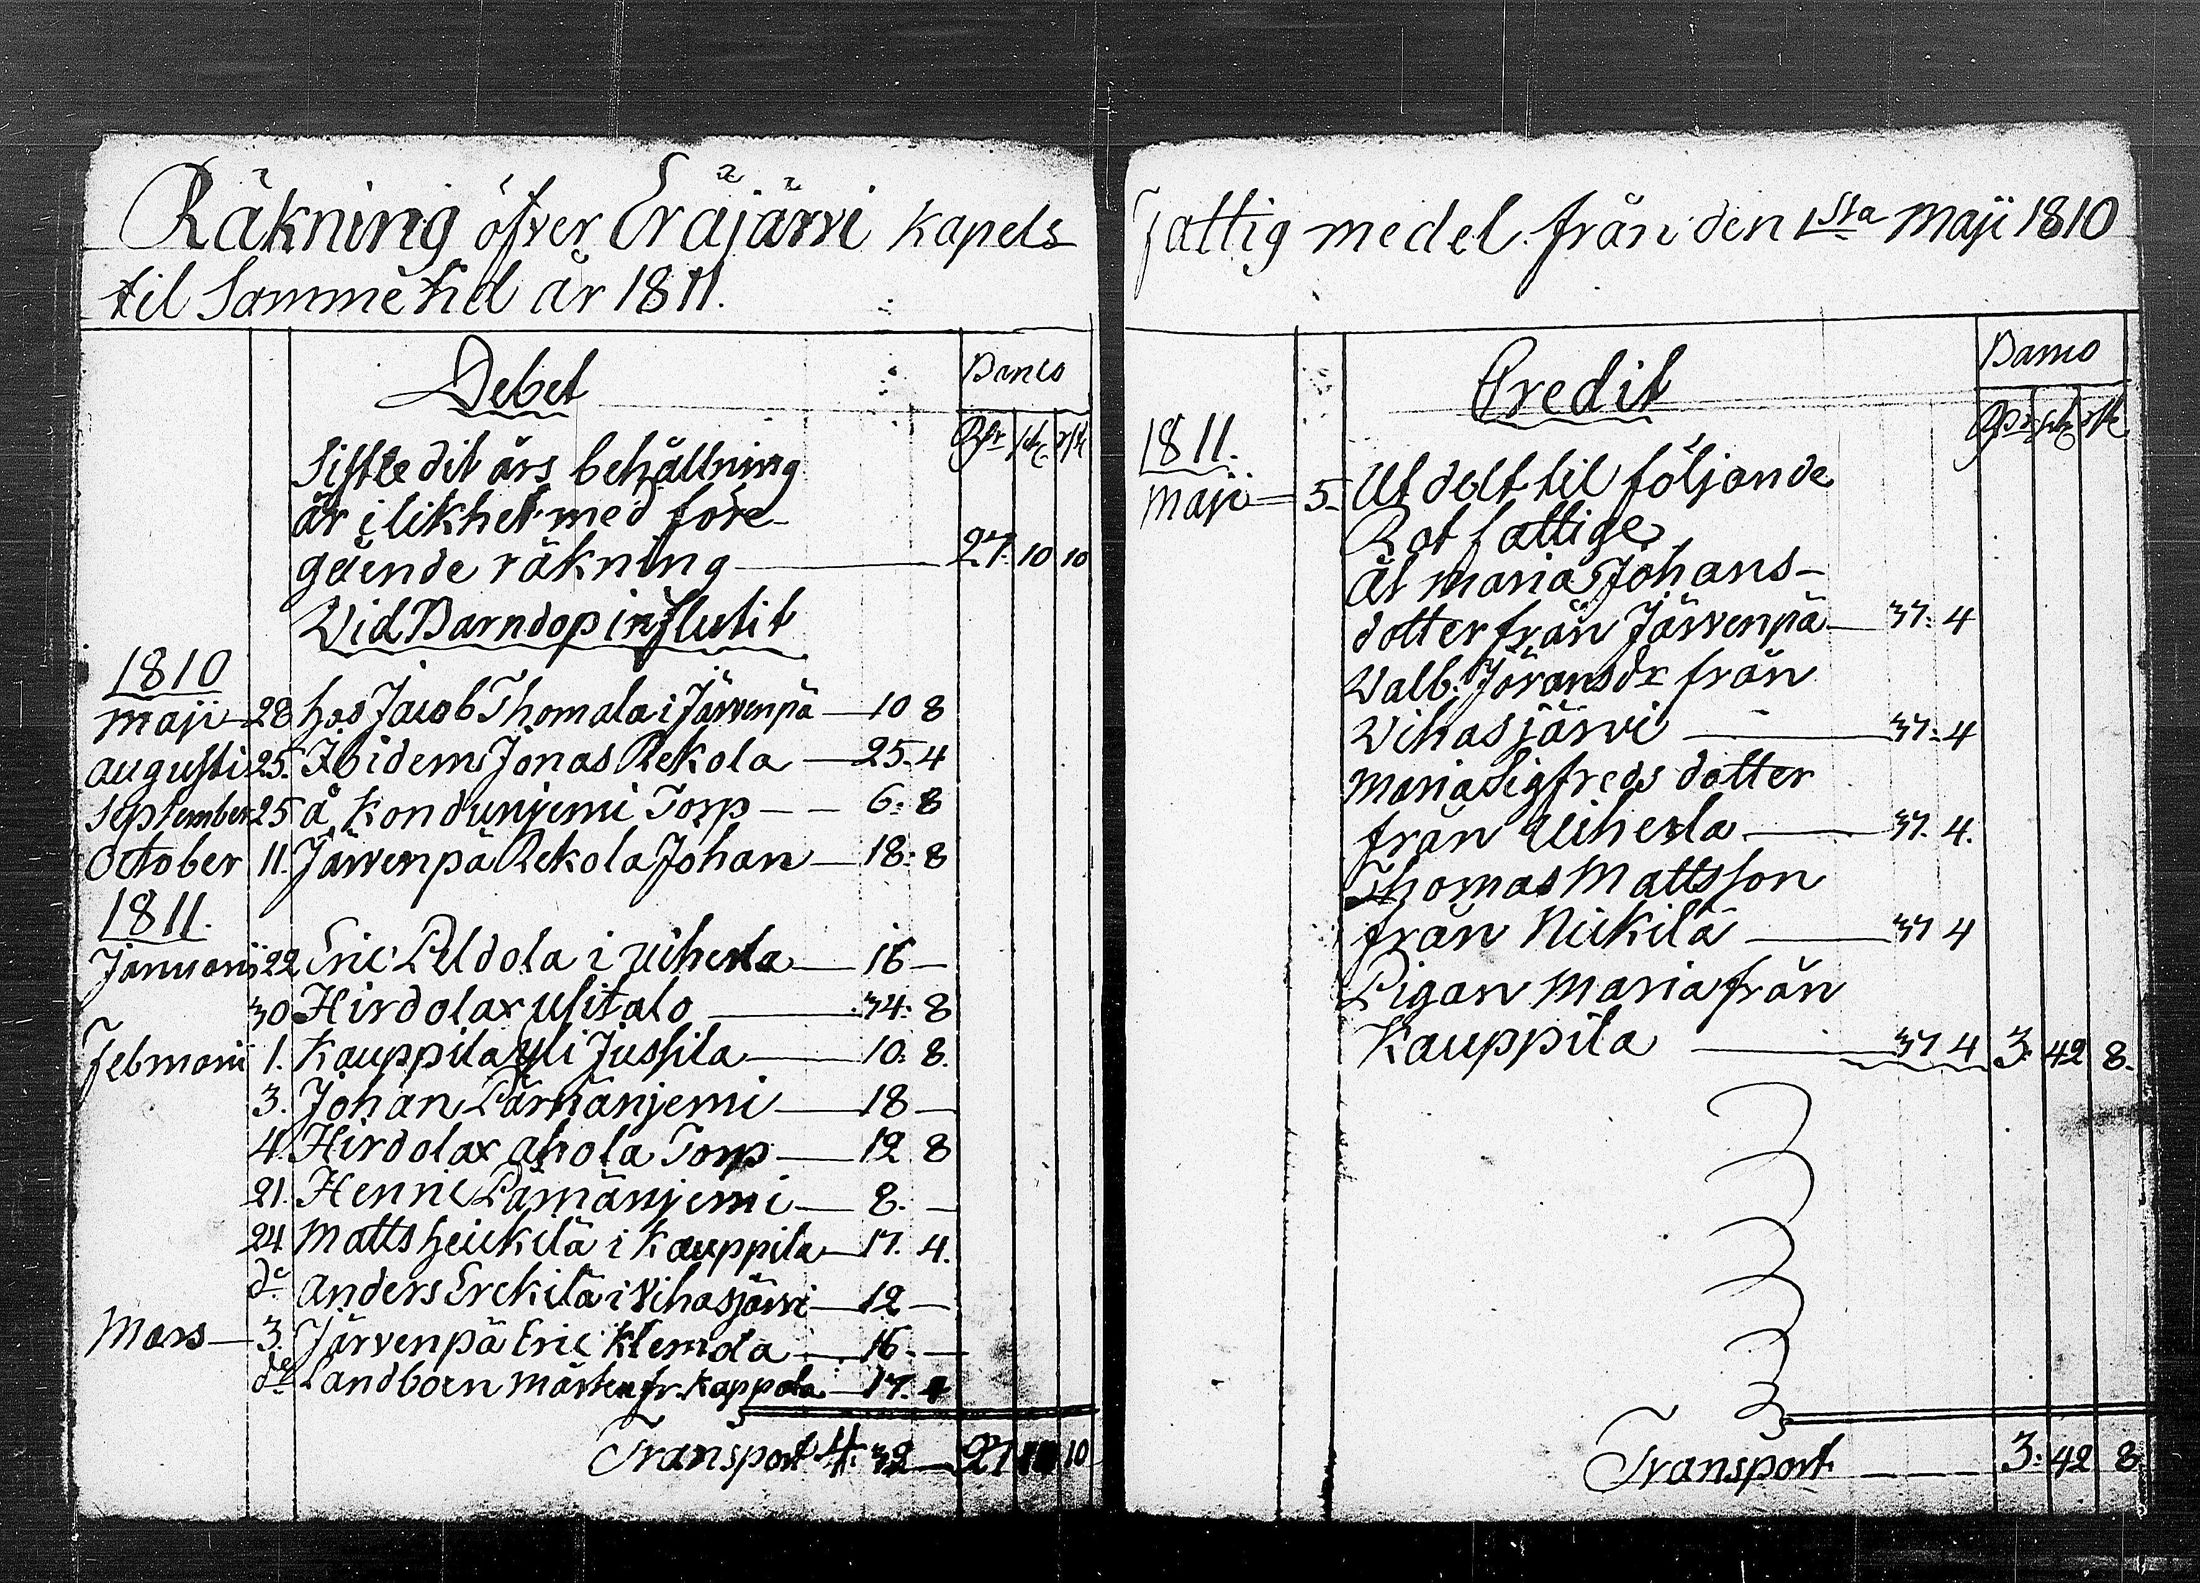 Räkning öfver Eräjärvi Kapels
til Samme tid år 1811.
Debet
Banco
Rdr sk rst
Sistledit års behållning
är i likhet med före-
gående räkning — 27. 10 10
Vid Barndop influtit
1810
Maji — 28 hos Jacob Thomala i Järvenpä — 10 8
Augusti 25. Ibidem Jonas Rekola — 25. 4
September 25 å Kondunjemi Torp — — 6. 8
October 11. Järvenpä Rekola Johan — 18. 8
1811.
Januarii 22 Eric Peldola i Uiherla — 16 —
30 Hirdolax Ulitalo — 34. 8
Februarii 1. Kauppila Yli Jussila — 10. 8.
3. Johan Pärnänjemi — 18 —
4. Hirdolax Ahola Torp — 12 8
21. Henric Pärnänjemi — 8. —
24 Matts Heickilä i Kauppila — 17. 4.
do Anders Erckilä i Vihasjärvi — 12 —
Mars — 3. Järvenpä Eric Klemola — 16. —
do Landboen Mårten fr. Kappola — 17. 4
Transport 4. 32 — 27 10 10
Fattig medel från den 1sta Maji 1810
Credit
Banco
Rdr sk rst
1811.
Maji — 5. Utdelt til följande
Rotfattige
Åt Maria Johans-
dotter från Järvenpä — 37. 4
Valb. Jöransdr från
Vihasjärvi — 37. 4
Maria Sigfreds dotter
från Uiherla — 37. 4.
Thomas Mattsson
från Nickilä — 37 4
Pigan Maria från
Kauppila — 37 4 3. 42 8.
Transport — — — 3. 42 8